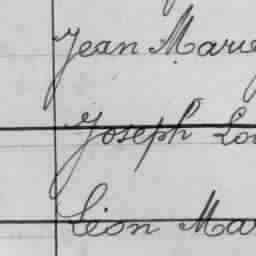 Jean Marie
Joseph Lou
Léon Mar